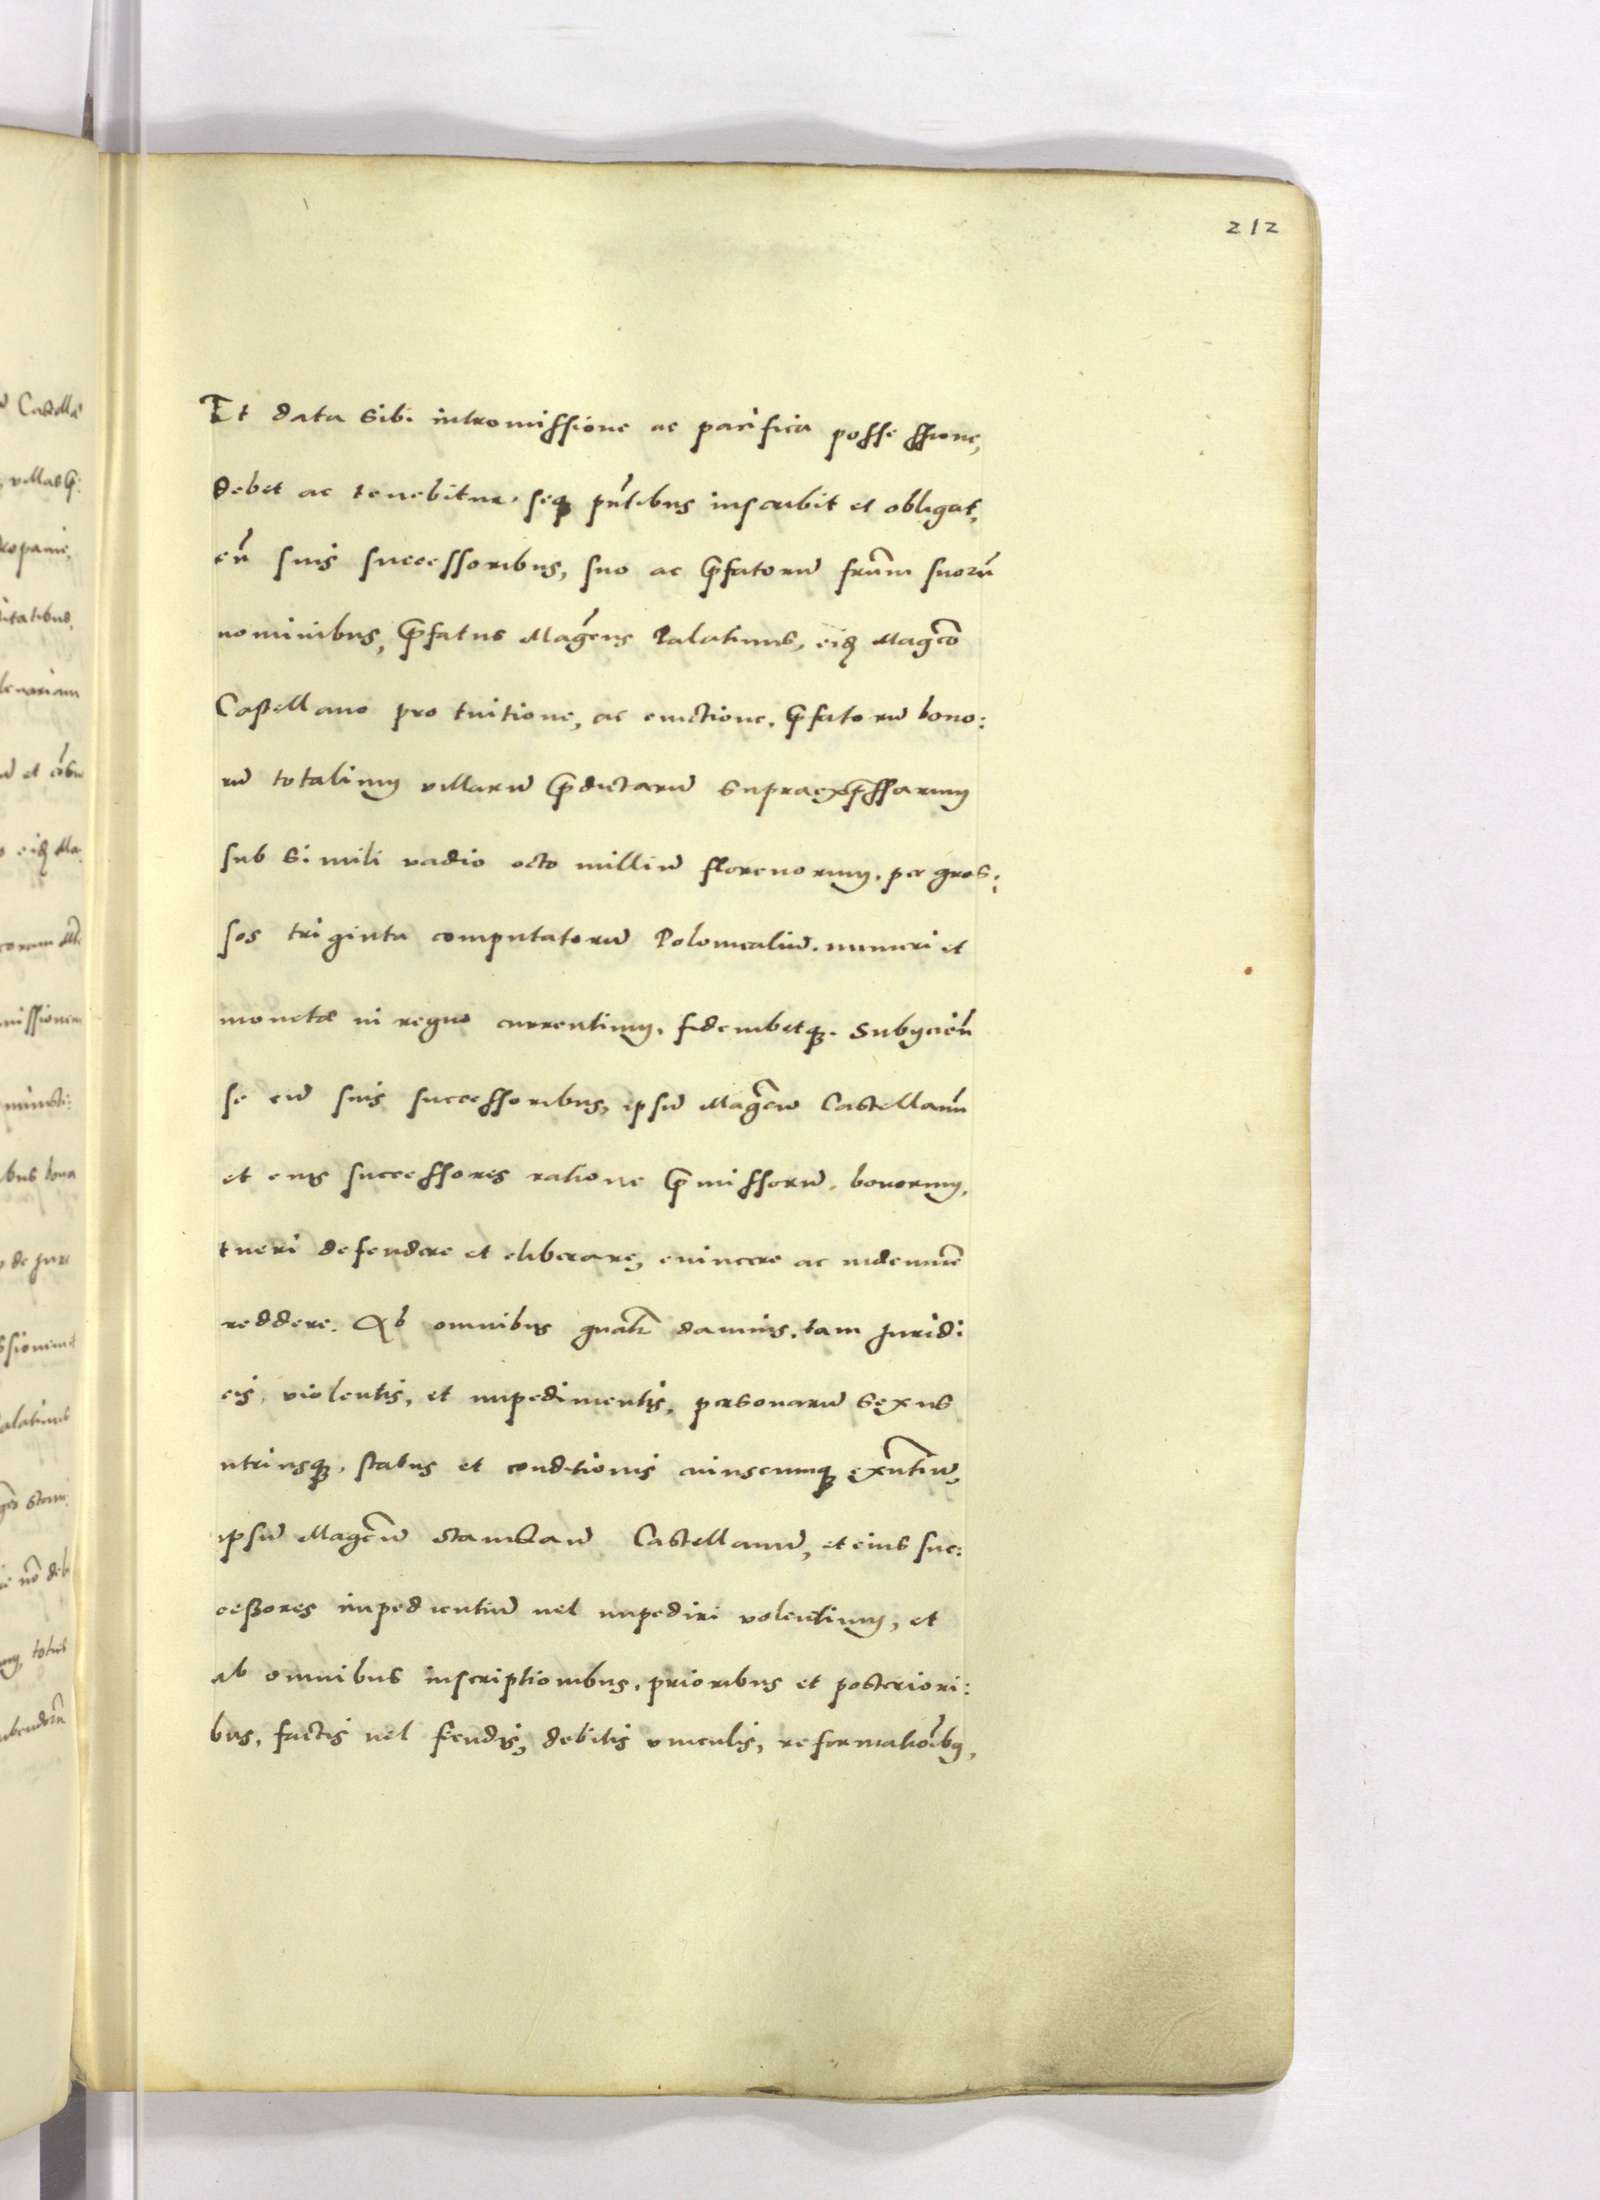 212
Et data sibi intromissione ac pacifica possessione,
debet ac tenebitur, seq₃ pn̄tibus inscribit et obligat,
cū suis successoribus, suo ac p̄fatorū frūm suorū
nominibus, p̄fatus Mag̃cus Palatinus, eid̃ Mag̃co
Castellano pro tuitione, ac euictione, p̄fatorū bono:
rū totalium villarū p̄dictarū supraexp̄ssarum
sub simili vadio octo milliū florenorum, per gros:
sos triginta computatorū Polonicaliū, numeri et
monetæ in regno currentium, fidembetq₃. Subijcien̄
se cū suis successoribus, ipsū Mag̃cū Castellanū
et eius successores ratione p̄missorū, bonorum,
tueri defendere et eliberare, euincere ac indemnē
reddere. Ab omnibus damnis, tam Juridi
cis, violentis, et impedimentis, personarū sexus
utriusq₃, status et conditionis cuiuscumq₃ exn̄tiū,
ipsū Mag̃cū Castellanū, et eius suc:
cessores impedientiū uel impediri volentium, et
ab omnibus inscriptionibus, prioribus et posteriori:
bus, factis uel fiendis, debitis vinculis, reformatiōibus,
Castella
villas p̄:
itatibus,
et
eid̃ Ma:
coram
missionem
bus bona
de jure
ssionem
alatinus
nō deb
totus